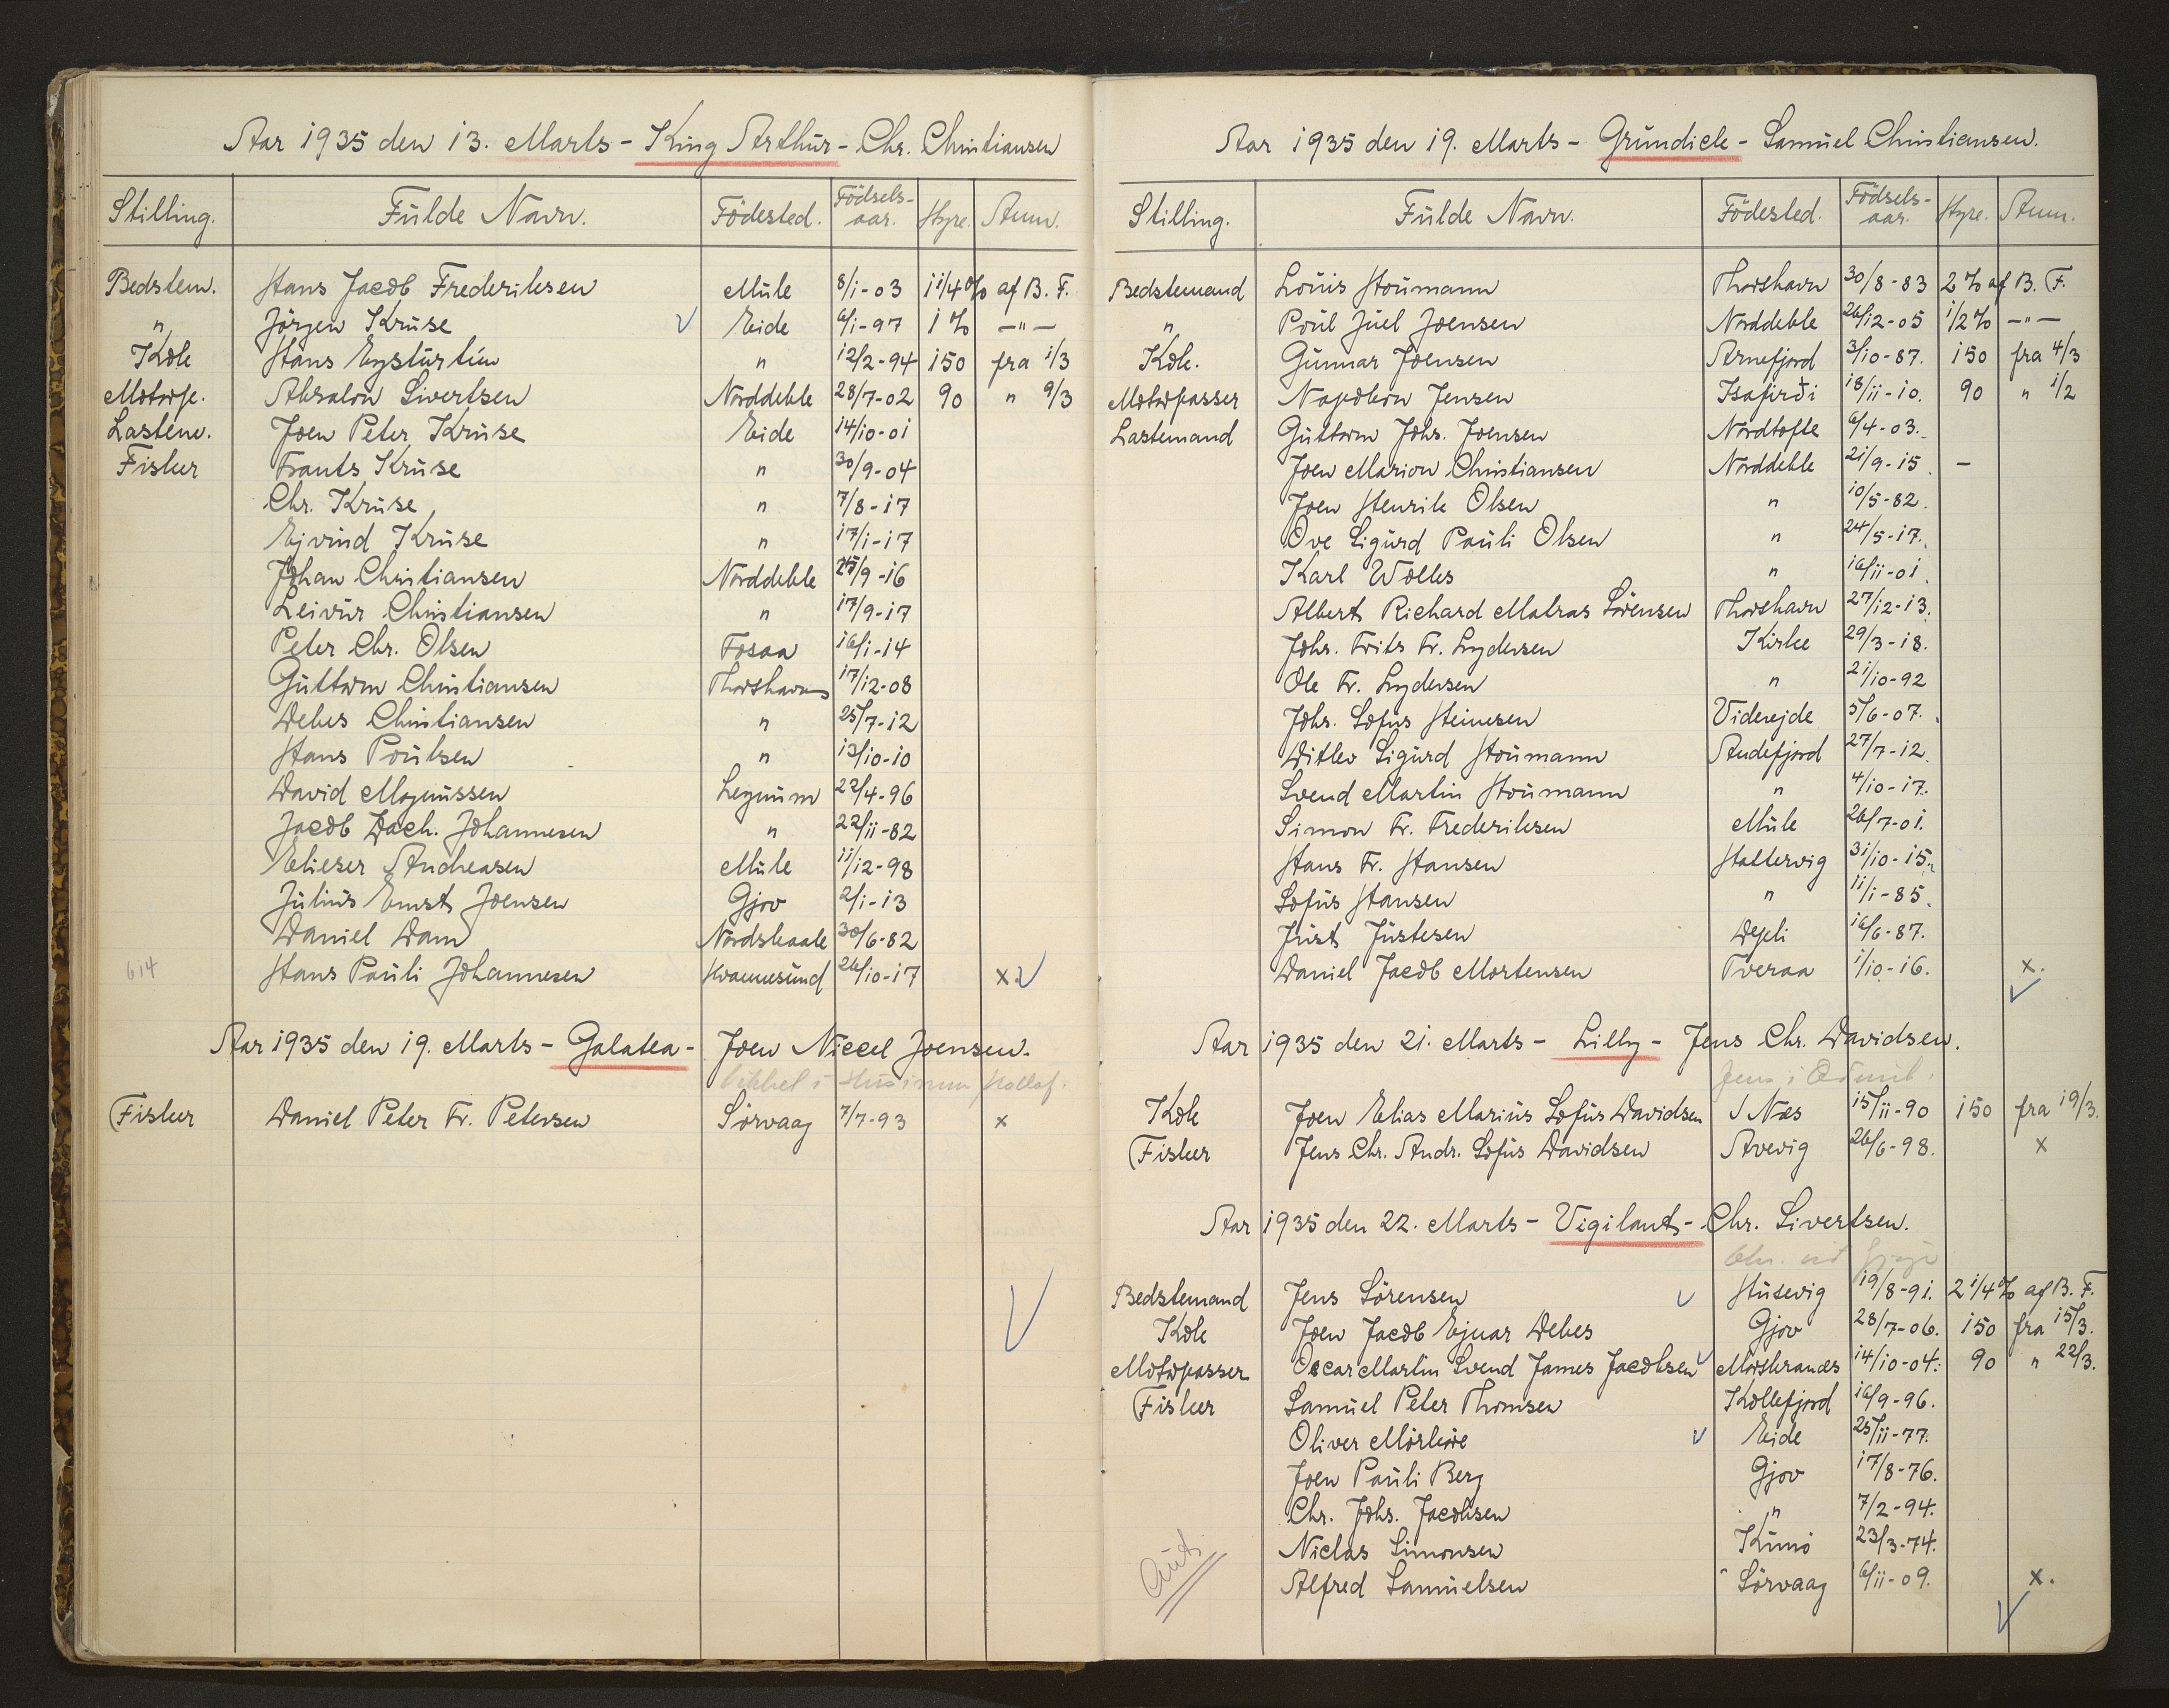 Aar 1935 den 13. Marts - King Arthur - Chr. Christiansen
Stilling. Fulde Navn. Födested. Födsels-aar. Hyre. Anm.
Bedstem. Hans Jacob Frederiksen Mule 8/1-03 1 1/4 % af B. F.
" Jörgen Kruse Eide 6/1-97 1 % -"-
Kok Hans Eysturlid " 12/2-94 150 fra 1/3
Motorp. Absalon Sivertsen Norddeble 28/7-02 90 " 9/3
Lastem. Joen Peter Kruse Eide 14/10-01
Fisker Frants Kruse " 30/9-04
Chr. Kruse " 7/8-17
Ejvind Kruse " 17/1-17
Johan Christiansen Norddeble 25/9-16
Leivur Christiansen " 17/9-17
Peter Chr. Olsen Fosaa 16/1-14
Guttorm Christiansen Thorshavn 17/12-08
Debes Christiansen " 25/7-12
Hans Poulsen " 13/10-10
David Magnussen Leynum 22/4-96
Jacob Zach. Johannesen " 22/11-82
Elieser Andreasen Mule 11/12-98
Julius Ernst Joensen Gjov 2/1-13
Daniel Dam Nordskaale 30/6-82
614 Hans Pauli Johannesen Hvannesund 26/10-17 x
Aar 1935 den 19. Marts - Galatea - Joen Niccel Joensen.
Fisker Daniel Peter Fr. Petersen Sörvaag 7/7-93 x
Aar 1935 den 19. Marts - Grundick - Samuel Christiansen.
Stilling. Fulde Navn. Födested. Födsels-aar. Hyre. Anm.
Bedstemand Louis Houmann Thorshavn 30/8-83 2 % af B. F.
" Poul Juel Joensen Norddeble 26/12-05 1/2 % -"-
Kok. Gunnar Joensen Arnefjord 3/10-87. 150 fra 4/3
Motorpasser Napoleon Jensen Isafirði 18/11-10. 90 " 1/2
Lastemand Guttorm Johs. Joensen Nordtofte 6/4-03.
Joen Marion Christiansen Norddeble 21/9-15. -
Joen Henrik Olsen " 10/5-82.
Ove Sigurd Pauli Olsen " 24/5-17.
Karl Wolles " 16/11-01.
Albert Richard Matras Sörensen Thorshavn 27/12-13.
Johs. Frits Fr. Lydersen Kirke 29/3-18.
Ole Fr. Lydersen " 21/10-92
Johs. Sofus Heinesen Viderejde 5/6-07.
Ditlev Sigurd Houmann Andefjord 27/7-12.
Svend Martin Houmann " 4/10-17.
Simon Fr. Frederiksen Mule 26/7-01.
Hans Fr. Hansen Hattervig 31/10-15.
Sofus Hansen " 11/1-85.
Just Justesen Depli 16/6-87.
Daniel Jacob Mortensen Tveraa 1/10-16. x.
Aar 1935 den 21. Marts - Lilly - Jens Chr. Davidsen.
Kok Joen Elias Marius Sofus Davidsen Næs 15/11-90 150 fra 19/3.
Fisker Jens Chr. Andr. Sofus Davidsen Avevig 26/6-98. x
Aar 1935 den 22. Marts - Vigilant - Chr. Sivertsen.
Bedstemand Jens Sörensen Husevig 19/8-91. 2 1/4 % af B. F.
Kok Joen Jacob Ejnar Debes Gjov 28/7-06. 150 fra 15/3.
Motorpasser Oscar Martin Svend James Jacobsen Morskranes 14/10-04. 90 " 22/3.
Fisker Samuel Peter Thomsen Kollefjord 16/9-96.
Oliver Mörköre Eide 25/11-77.
Joen Pauli Berg Gjov 17/8-76.
Chr. Johs. Jacobsen " 7/2-94.
Niclas Simonsen Kunö 23/3-74.
Alfred Samuelsen Sörvaag 6/11-09. x.